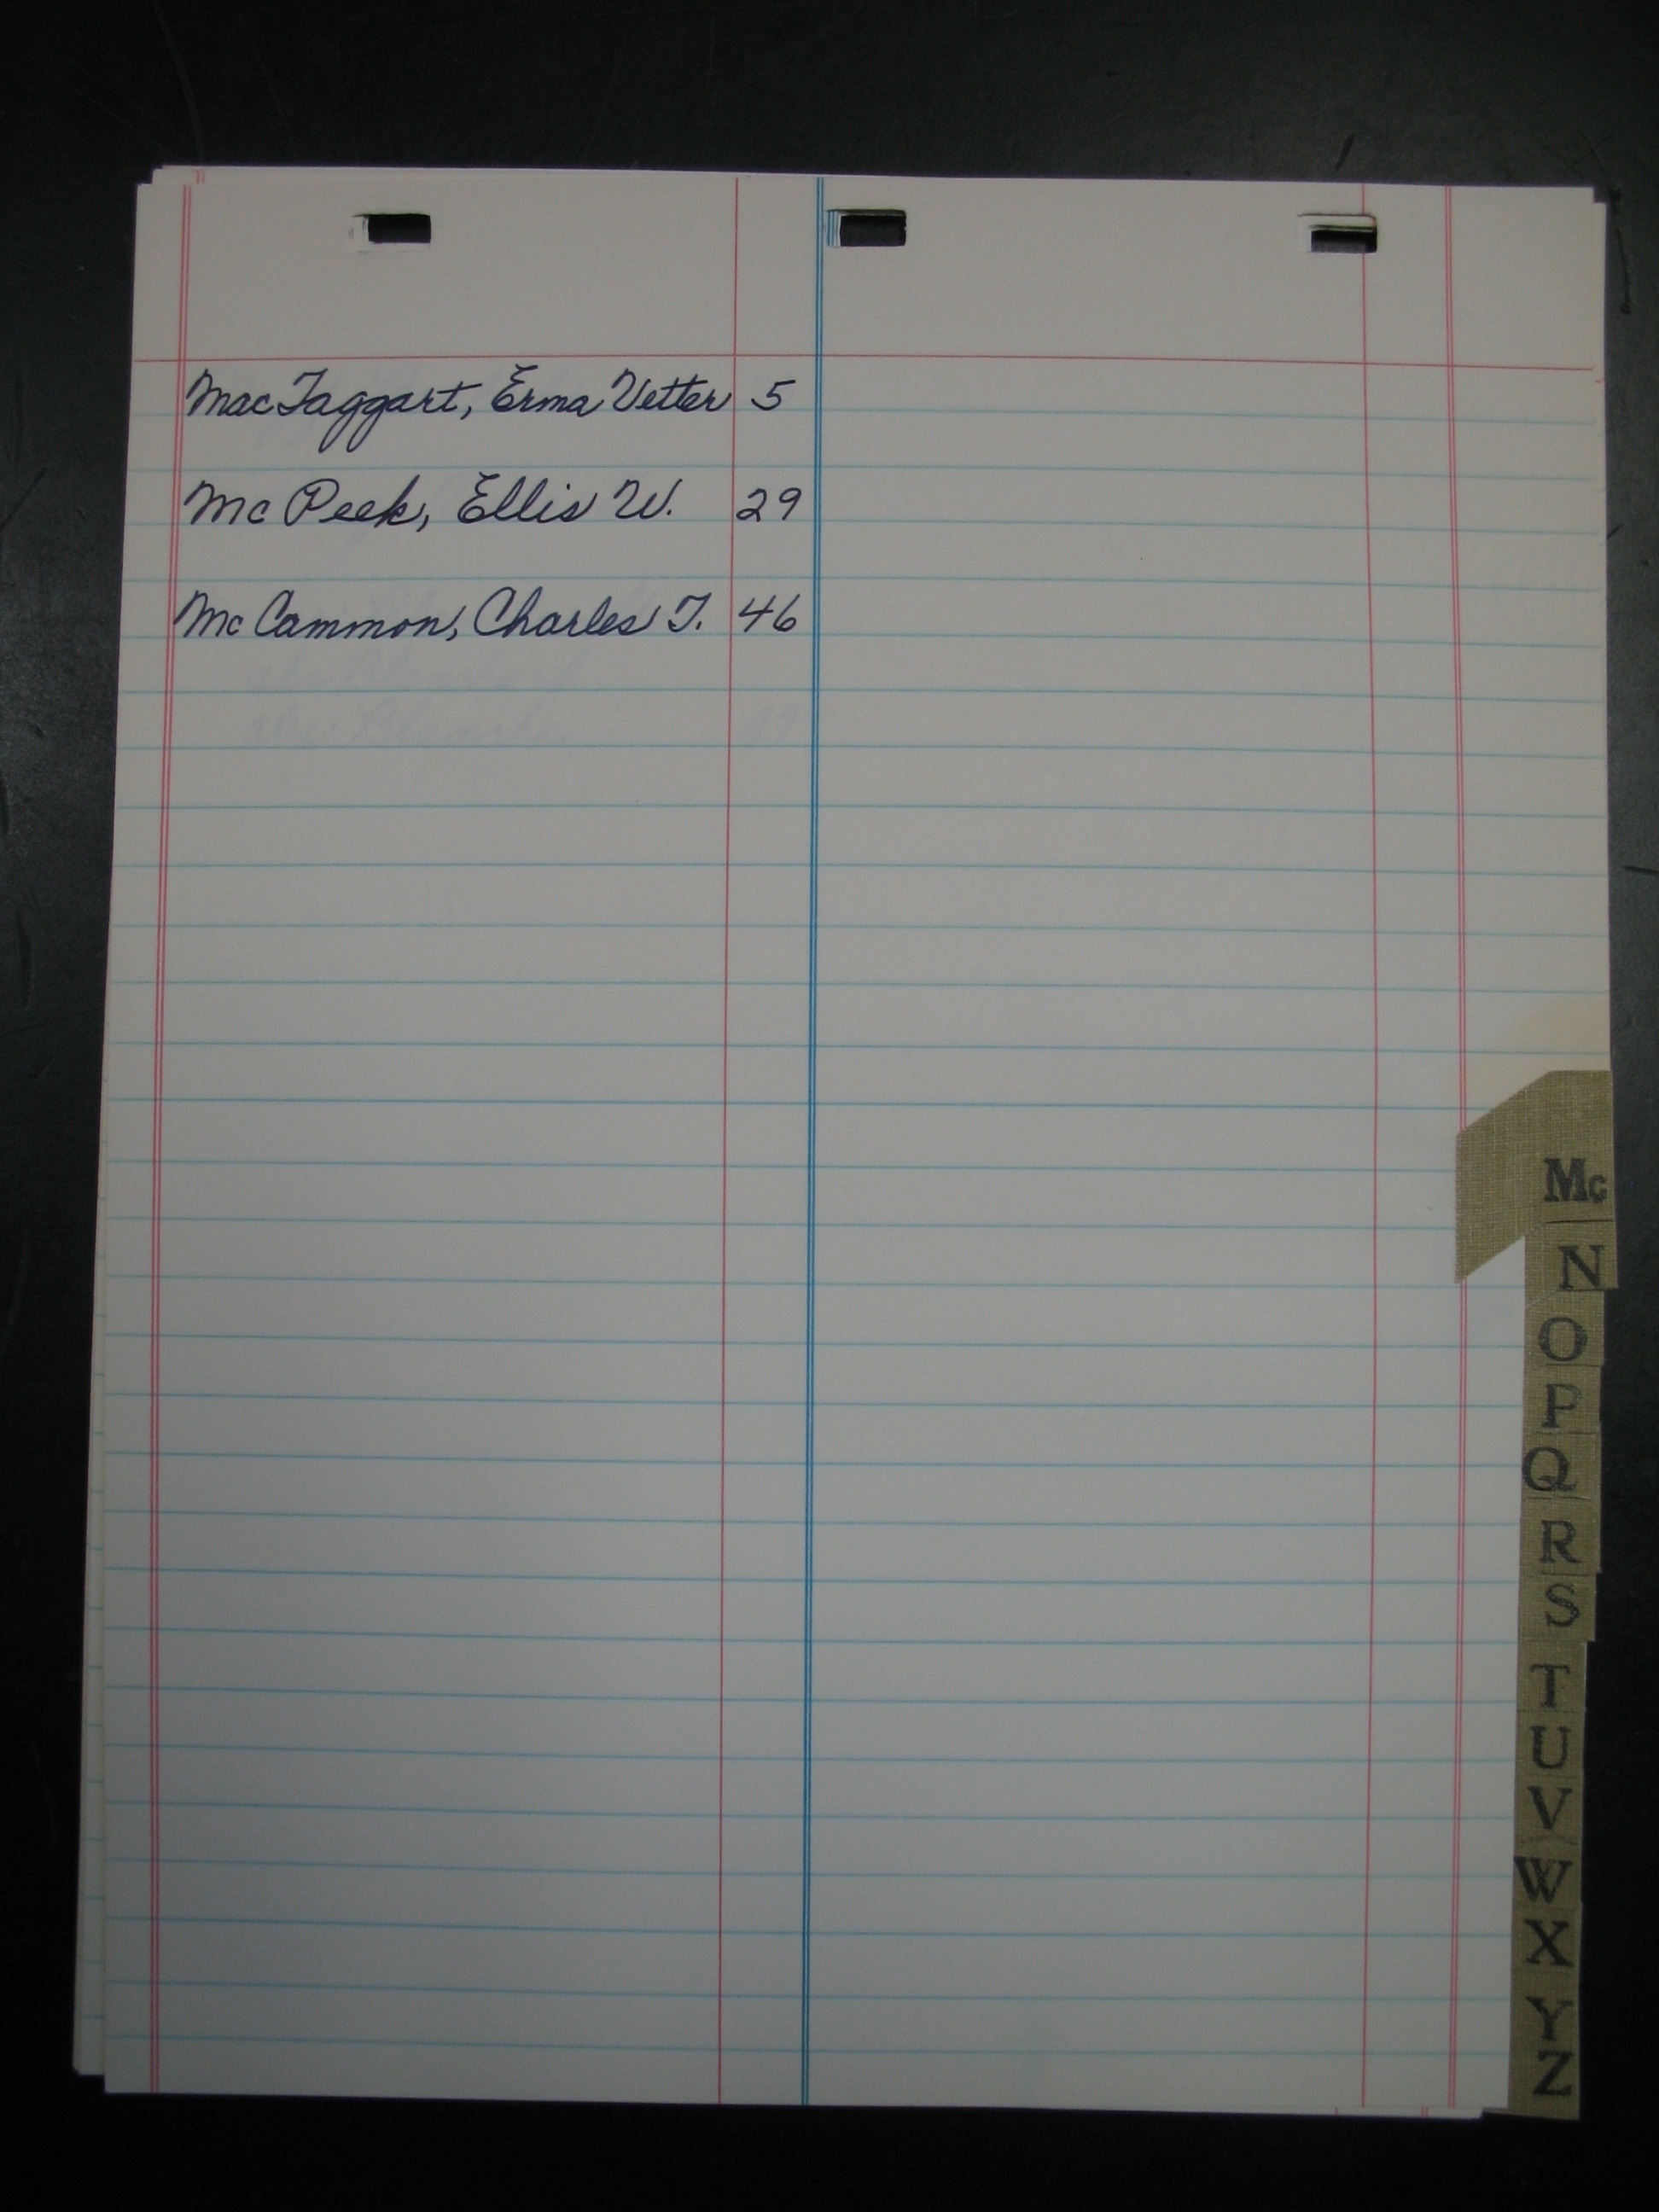 MacTaggart, Erma Vetter 5
McPeek, Ellis W. 29
McCammon, Charles T. 46
Mc
N
O
P
Q
R
S
T
U
V
W
X
Y
Z